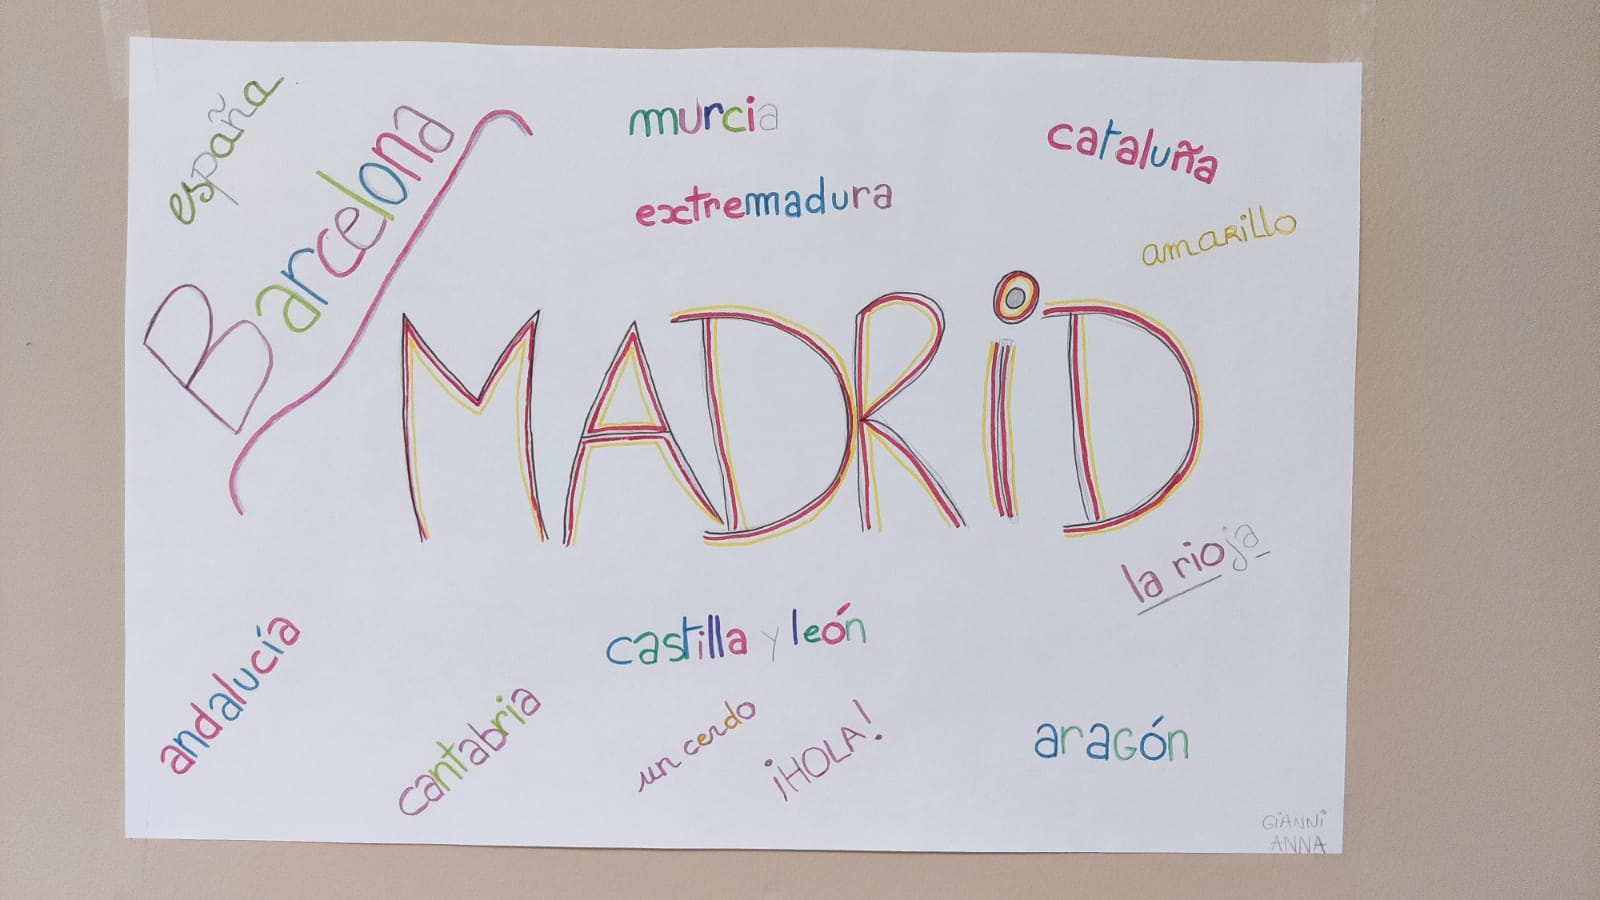 españa
Barcelona
murcia
cataluña
extremadura
amarillo
MADRiD
la rioja
andalucía
castilla y león
cantabria
un cerdo
¡HOLA!
aragón
GiANNi
ANNA